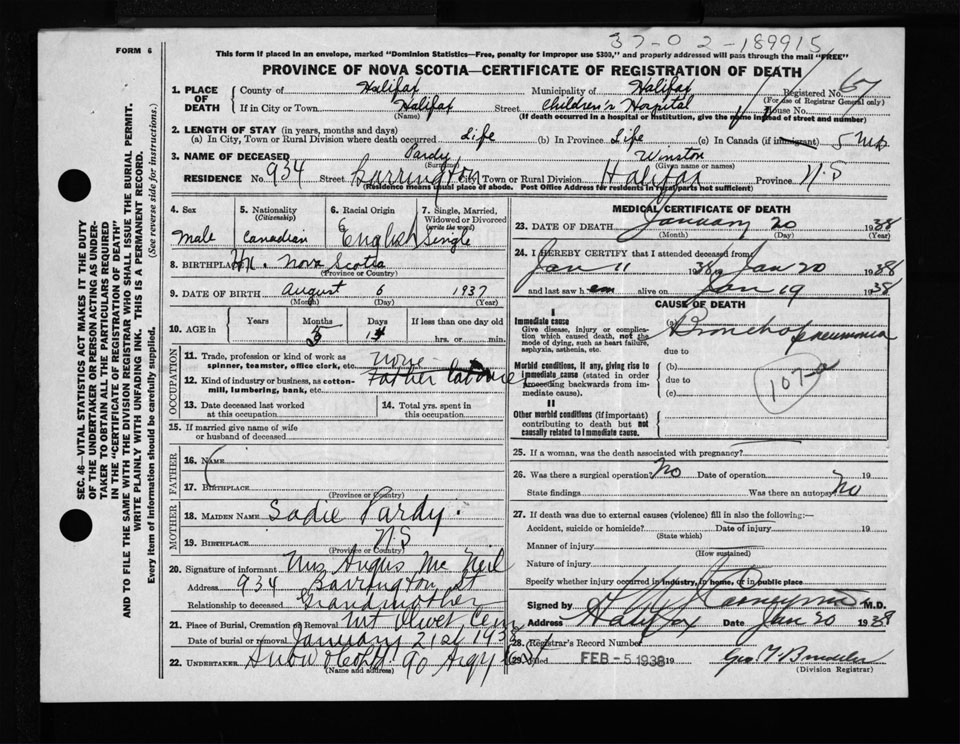 37-02-189915
FORM 6
This form if placed in an envelope, marked "Dominion Statistics—Free, penalty for improper use $300," and properly addressed will pass through the mail "FREE"
PROVINCE OF NOVA SCOTIA—CERTIFICATE OF REGISTRATION OF DEATH
1. PLACE OF DEATH County of Halifax Municipality of Halifax Registered No. 67
(For use of Registrar General only)
If in City or Town Halifax Street Children's Hospital House No.
(Name) (If death occurred in a hospital or institution, give the name instead of street and number)
2. LENGTH OF STAY (in years, months and days)
(a) In City, Town or Rural Division where death occurred Life (b) In Province Life (c) In Canada (if immigrant) 5 Ms
3. NAME OF DECEASED Pardy Winston
(Surname) (Given name or names)
RESIDENCE No. 934 Street Barrington City, Town or Rural Division Halifax Province N.S
(Residence means usual place of abode. Post Office Address for residents in rural parts not sufficient)
4. Sex Male
5. Nationality (Citizenship) Canadian
6. Racial Origin English
7. Single, Married, Widowed or Divorced (write the word) Single
8. BIRTHPLACE Hx. Nova Scotia
(Province or Country)
9. DATE OF BIRTH August 6 1937
(Month) (Day) (Year)
10. AGE in Years Months 5 Days If less than one day old
hrs. or min.
OCCUPATION
11. Trade, profession or kind of work as spinner, teamster, office clerk, etc. none
12. Kind of industry or business, as cotton-mill, lumbering, bank, etc. Father
13. Date deceased last worked at this occupation
14. Total yrs. spent in this occupation
15. If married give name of wife or husband of deceased
FATHER
16. Name
17. Birthplace
(Province or Country)
MOTHER
18. Maiden Name Sadie Pardy.
19. Birthplace N.S
(Province or Country)
20. Signature of informant Mrs Angus Mc Neil
Address 934 Barrington St
Relationship to deceased Grandmother
21. Place of Burial, Cremation or Removal Mt Olivet Cem
Date of burial or removal January 21st 1938
22. UNDERTAKER Snow & Co Ltd. 90 Argyle St
(Name and address)
MEDICAL CERTIFICATE OF DEATH
23. DATE OF DEATH January 20 1938
(Month) (Day) (Year)
24. I HEREBY CERTIFY that I attended deceased from
Jan 11 1938 to Jan 20 1938
and last saw h em alive on Jan 19 1938
CAUSE OF DEATH
I
Immediate cause
Give disease, injury or complication which caused death, not the mode of dying, such as heart failure, asphyxia, asthenia, etc.
(a) Broncho pneumonia
due to
Morbid conditions, if any, giving rise to immediate cause (stated in order proceeding backwards from immediate cause).
(b)
due to
(c)
107-a
II
Other morbid conditions (if important) contributing to death but not causally related to immediate cause.
25. If a woman, was the death associated with pregnancy?
26. Was there a surgical operation? No Date of operation 19
State findings Was there an autopsy? No
27. If death was due to external causes (violence) fill in also the following:—
Accident, suicide or homicide? Date of injury 19
(State which)
Manner of injury
(How sustained)
Nature of injury
Specify whether injury occurred in industry, in home, or in public place
Signed by M.D.
Address Halifax Date Jan 20 1938
28. Registrar's Record Number
29. Filed FEB - 5 1938 19
(Division Registrar)
SEC. 46—VITAL STATISTICS ACT MAKES IT THE DUTY
OF THE UNDERTAKER OR PERSON ACTING AS UNDER-
TAKER TO OBTAIN ALL THE PARTICULARS REQUIRED
IN THE "CERTIFICATE OF REGISTRATION OF DEATH"
AND TO FILE THE SAME WITH THE DIVISION REGISTRAR WHO SHALL ISSUE THE BURIAL PERMIT.
WRITE PLAINLY WITH UNFADING INK. THIS IS A PERMANENT RECORD.
Every item of information should be carefully supplied. (See reverse side for instructions.)